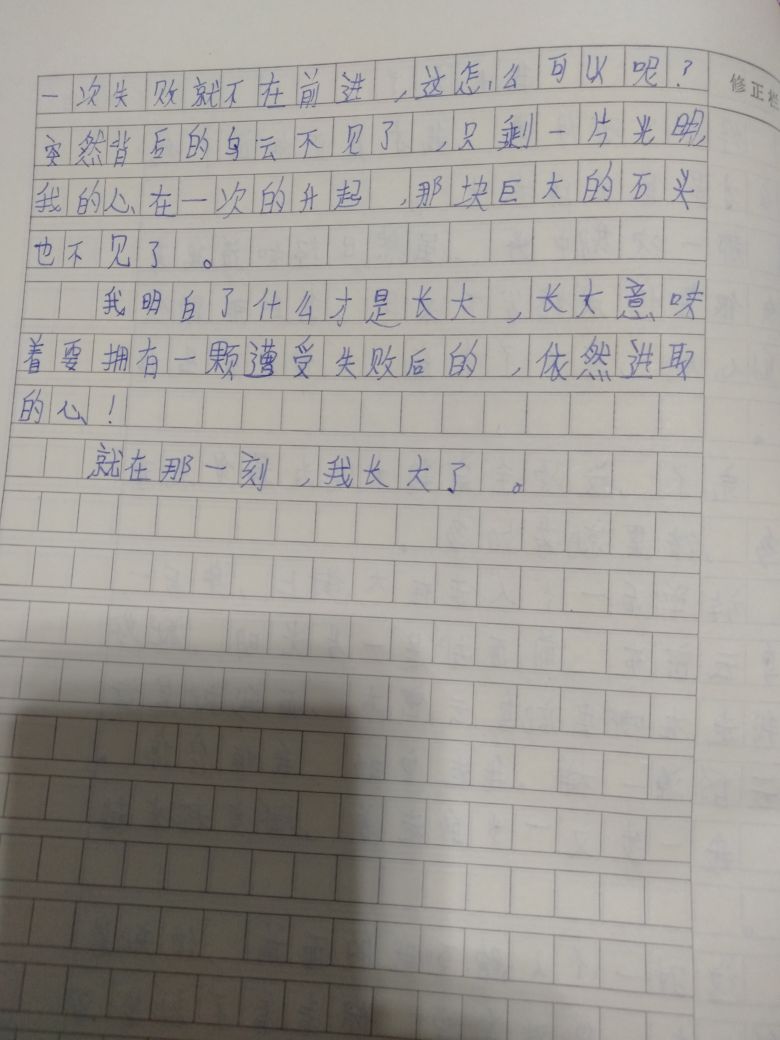 一次失败就不在前进,这怎么可以呢?
修正栏
突然背后的乌云不见了,只剩一片光明,
我的心在一次的升起,那块巨大的石头
也不见了。
我明白了什么才是长大,长大意味
着要拥有一颗遭受失败后的,依然进取
的心!
就在那一刻,我长大了。